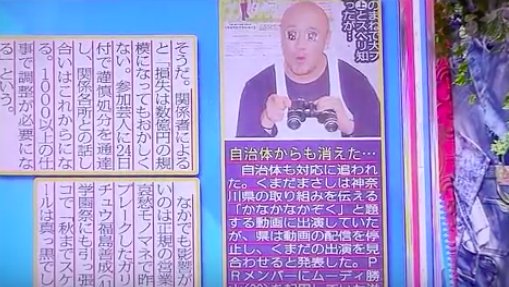 のまねで大ブ
上とスベリ知
ったが…
そうだ。関係者による
と「損失は数億円の規
模になってもおかしく
ない。参加芸人に24日
付で謹慎処分を通達
し、関係各所との話し
合いはこれからにな
る。1000以上の仕
事で調整が必要にな
る」という。
自治体からも消えた…
自治体も対応に追われ
た。くまだまさしは神奈
川県の取り組みを伝える
「かなかなかぞく」と題
する動画に出演していた
が、県は動画の配信を停
止し、くまだの出演を見
合わせると発表した。P
Rメンバーにムーディ勝
なかでも影響が
いのは正規の営業
哀愁モノマネで昨
ブレークしたガリ
チュウ福島善成
学園祭にも引っ張
コで「秋までスケ
ールは真っ黒でし